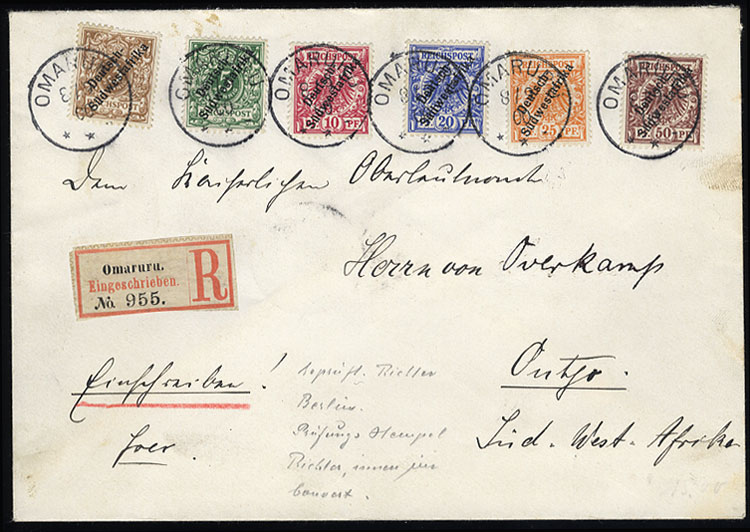 OMARURU OMARURU OMARURU OMARURU OMARURU
REICHSPOST REICHSPOST REICHSPOST REICHSPOST
Deutsch-Südwestafrika Deutsch-Südwestafrika Deutsch-Südwestafrika Deutsch-Südwestafrika Deutsch-Südwestafrika Deutsch-Südwestafrika
10 PF 20 PF 25 PF 50 PF
Dem Kaiserlichen Oberleutnant
Herrn von Overkamp
Omaruru.
Eingeschrieben.
No 955.
R
Outjo.
Süd-West-Afrika
Einschreiben!
geprüft. Richter
Berlin.
Prüfungs Stempel
Richter, innen im
Couvert.